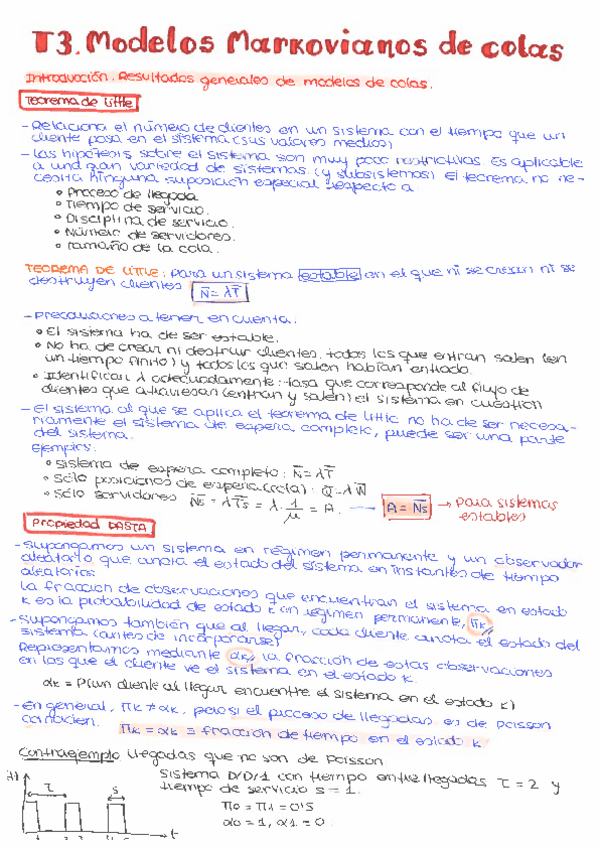 T3. Modelos Markovianos de colas
Introducción. Resultados generales de modelos de colas.
Teorema de Little
- Relaciona el número de clientes en un sistema con el tiempo que un
cliente pasa en el sistema (sus valores medios)
- Las hipótesis sobre el sistema son muy poco restrictivas. Es aplicable
a una gran variedad de sistemas (y subsistemas) El teorema no ne-
cesita ninguna suposición especial respecto a
• Proceso de llegada
• Tiempo de servicio.
• Disciplina de servicio.
• Número de servidores.
• Tamaño de la cola.
TEOREMA DE LITTLE: para un sistema estable en el que ni se crean ni se
destruyen clientes N̄ = λT̄
- Precauciones a tener en cuenta:
• El sistema ha de ser estable.
• No ha de crear ni destruir clientes. todos los que entran salen (en
un tiempo finito) y todos los que salen habían entrado.
• Identificar λ adecuadamente: tasa que corresponde al flujo de
clientes que atraviesan (entran y salen) el sistema en cuestión
- El sistema al que se aplica el teorema de Little no ha de ser necesa-
riamente el sistema de espera completo, puede ser una parte
del sistema.
Ejemplos:
• Sistema de espera completo: N̄ = λT̄
• Sólo posiciones de espera (cola): Q̄ = λW̄
• Sólo servidores N̄s = λT̄s = λ · 1/μ = A. → A = N̄s → para sistemas
estables
Propiedad PASTA
- Supongamos un sistema en régimen permanente y un observador
aleatorio que anota el estado del sistema en instantes de tiempo
aleatorios
La fracción de observaciones que encuentran el sistema en estado
k es la probabilidad de estado k en régimen permanente, πk
- Supongamos también que al llegar, cada cliente anota el estado del
sistema (antes de incorporarse)
Representamos mediante αk, la fracción de estas observaciones
en las que el cliente ve el sistema en el estado k.
αk = P(un cliente al llegar encuentre el sistema en el estado k)
- En general, πk ≠ αk, pero si el proceso de llegadas es de Poisson
coinciden. πk = αk ≡ fracción de tiempo en el estado k
Contraejemplo llegadas que no son de Poisson
Sistema D/D/1 con tiempo entre llegadas τ = 2 y
tiempo de servicio s = 1.
π0 = π1 = 0'5
α0 = 1, α1 = 0
τ
s
t